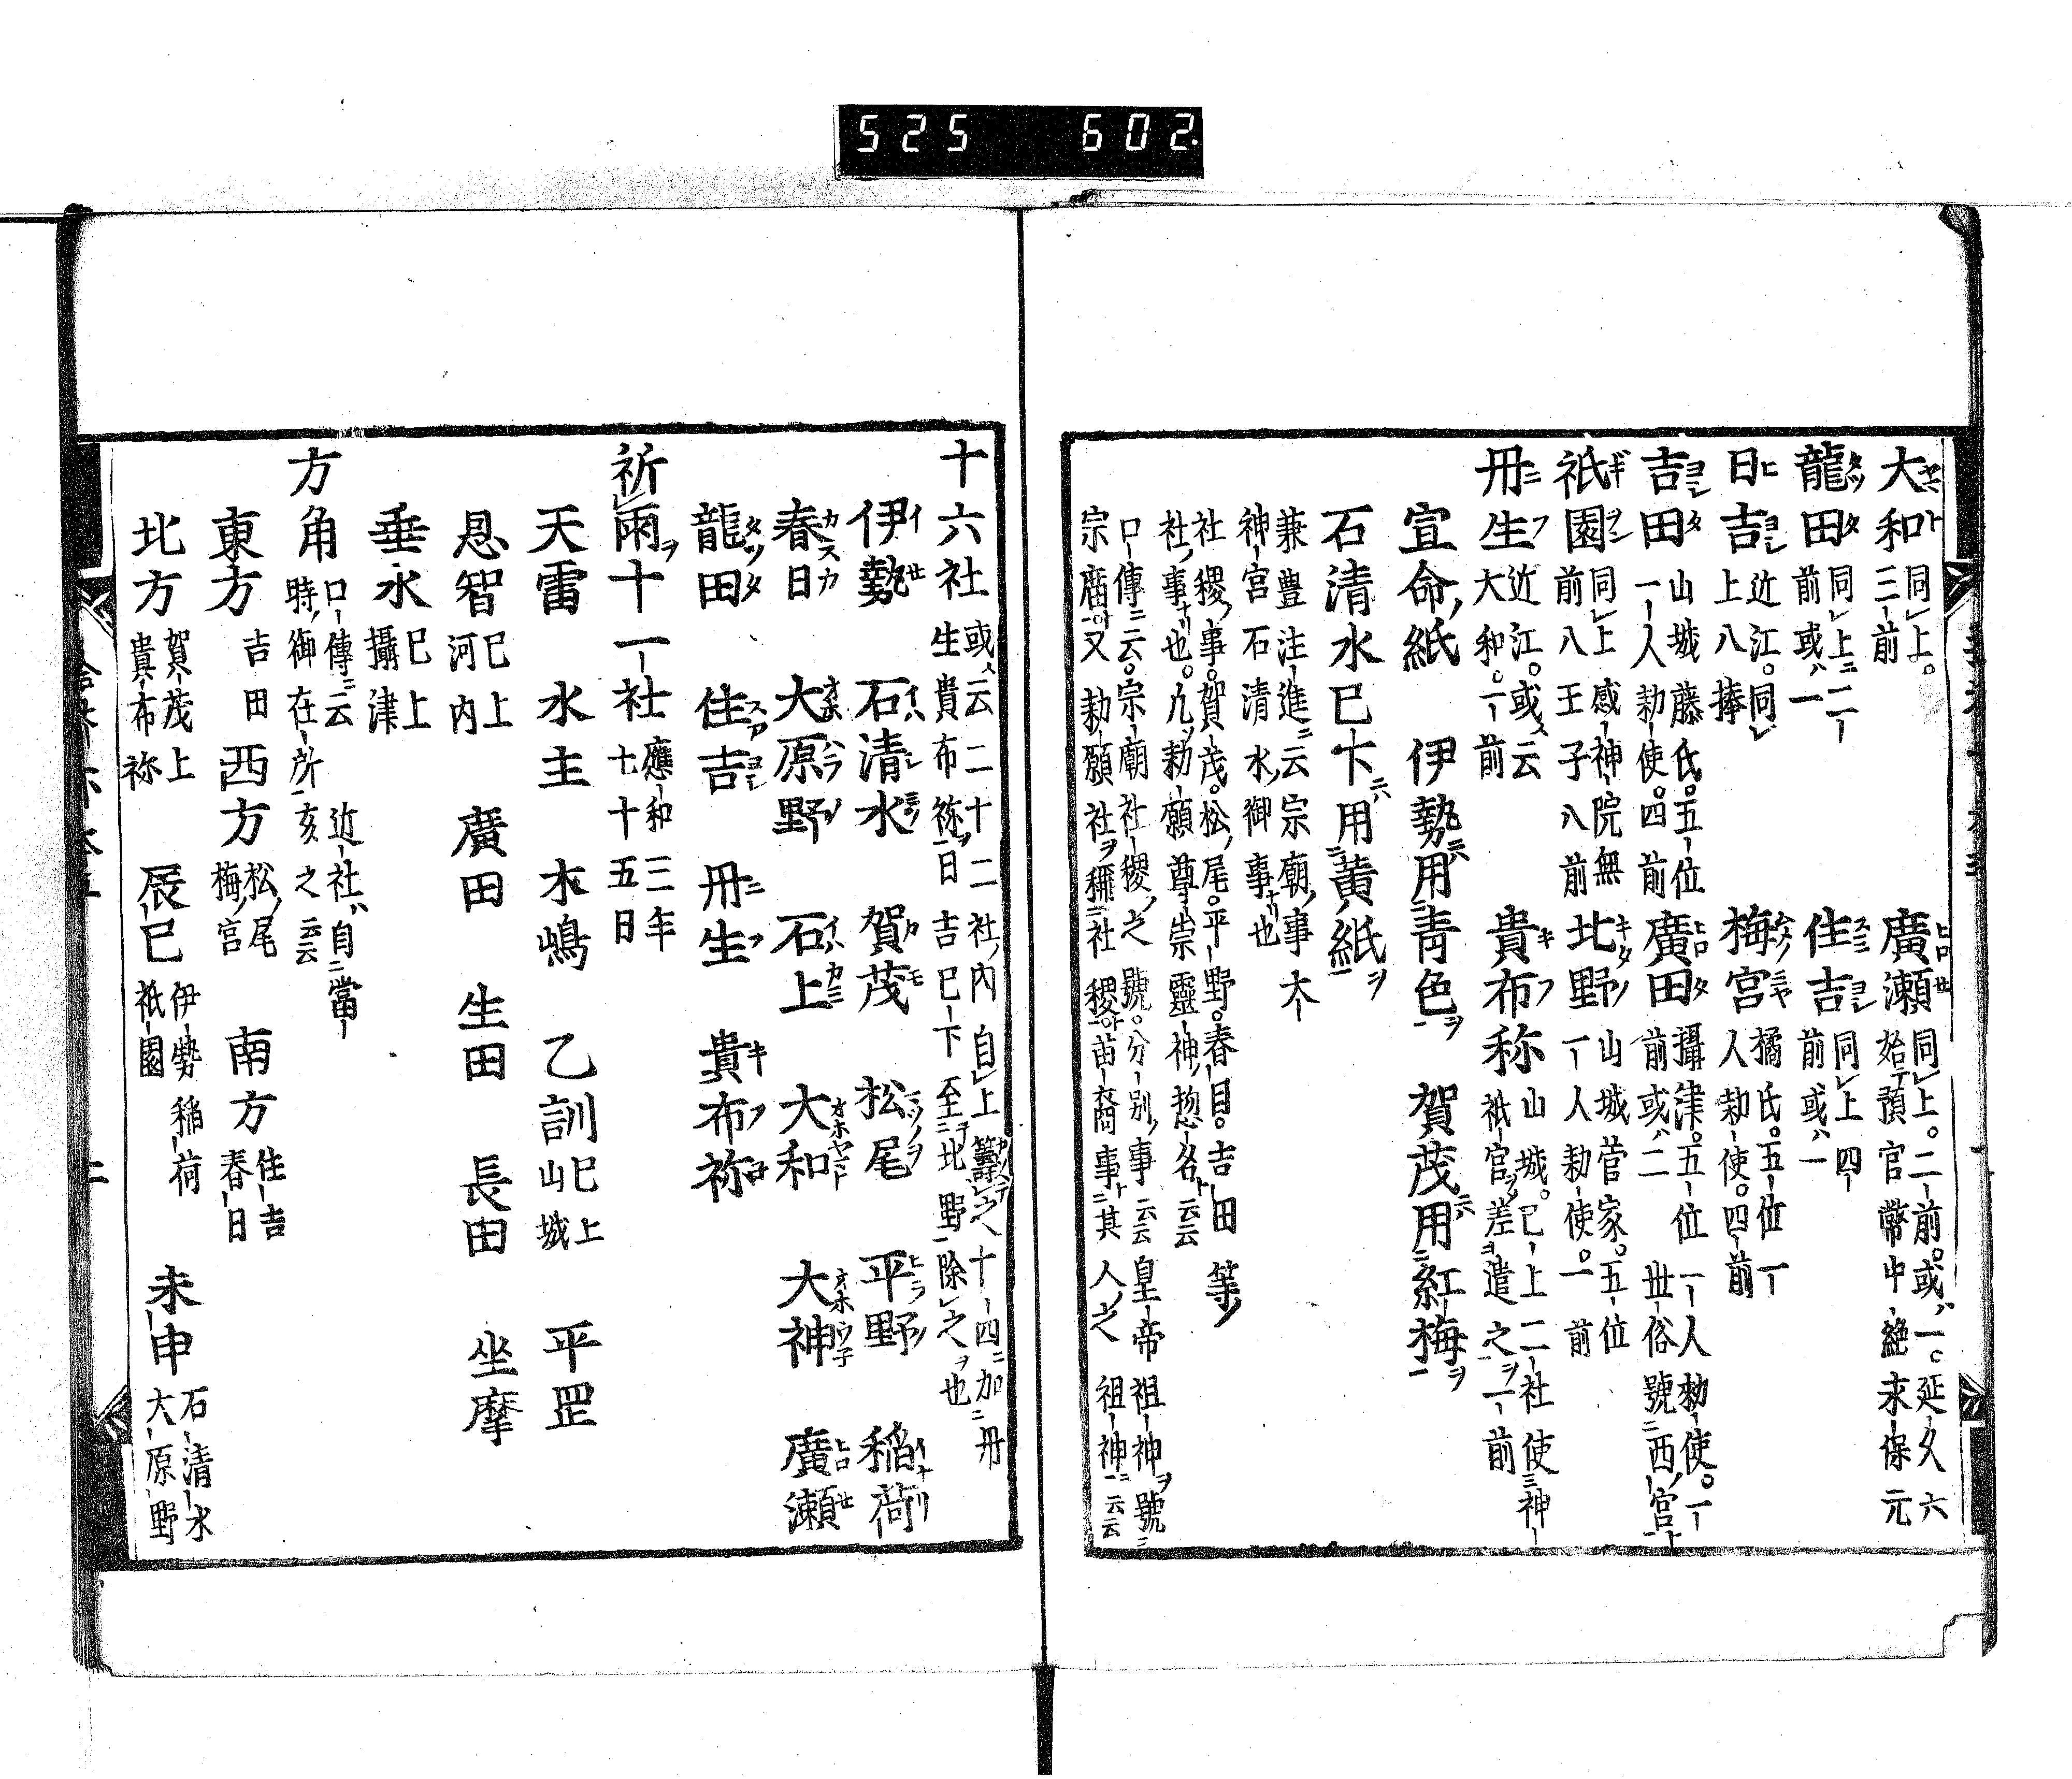 525 602
大和 同上。三前 廣瀬 同上。二前。或ハ一。延久六始預官幣中絶永保元
龍田 同上二前或ハ一 住吉 同上四前或ハ一
日吉 近江。同上八捧 梅宮 橘氏。五位一人勅使。四前
吉田 山城藤氏。五位一人勅使。四前 廣田 攝津。五位一人勅使。一前或ハ二世俗號西ノ宮
祇園 同上感神院無前八王子八前 北野 山城菅家。五位一人勅使。一前
丹生 近江。或ハ云大和。一前 貴布祢 山城。已上二社使神祇官差遣之一前
宣命ノ紙 伊勢ニハ用青色ヲ 賀茂ニハ用紅梅ヲ
石清水已下ニハ用黄紙ヲ
兼豊注進云宗廟ノ事大神宮石清水ノ御事也
社稷ノ事。賀茂。松ノ尾。平野。春日。吉田等ノ社ノ事也。凡ソ勅願尊崇靈神ノ惣名云云
口傳云。宗廟社稷之號。分別ノ事云云皇帝祖神ヲ號宗廟又勅願社ヲ稱社稷苗裔事其人之祖神云云
十六社 或ハ云二十二社ノ内自上籌之十四加丹生貴布祢日吉已下至北野除之也
伊勢 石清水 賀茂 松尾 平野 稲荷
春日 大原野 石上 大和 大神 廣瀬
龍田 住吉 丹生 貴布祢
祈雨十一社 應和三年七十五日
天雷 水主 木嶋 乙訓 已上山城 平罡
恩智 已上河内 廣田 生田 長田 坐摩
垂水 已上攝津
方角 口傳云近社ハ自當時ノ御在所亥之云云
東方 吉田 西方 松ノ尾梅ノ宮 南方 住吉春日
北方 賀茂上貴布祢 辰巳 伊勢稲荷祇園 未申 石清水大原野
二